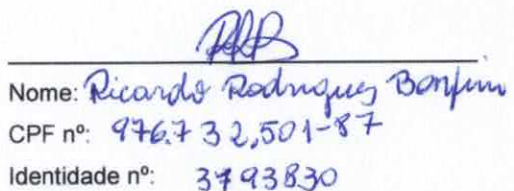 Nome: Ricardo Rodrigues Bonfim
CPF nº: 976.732,501-87
Identidade nº: 3793830